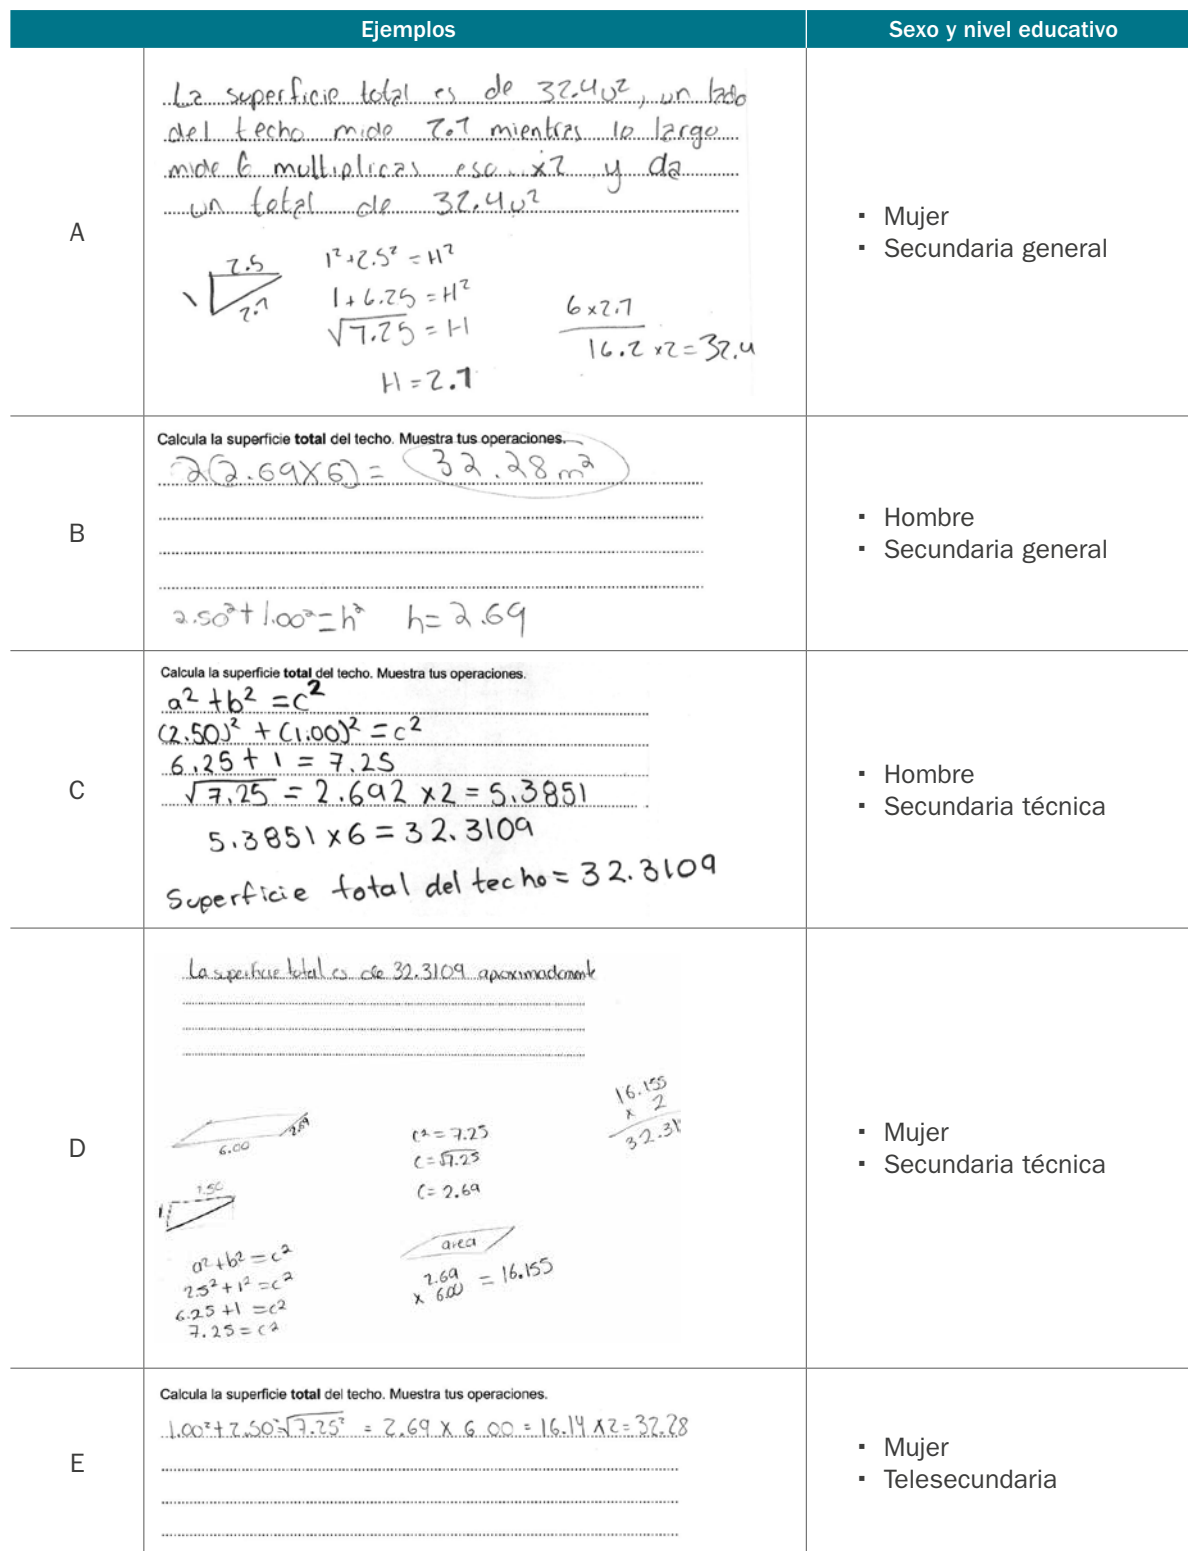 Ejemplos
Sexo y nivel educativo
A
La superficie total es de 32.4u², un lado
del techo mide 2.7 mientras lo largo
mide 6 multiplicas eso x2 y da
un total de 32.4u²
2.5
1
2.7
1²+2.5² = H²
1+6.25 = H²
√7.25 = H
H = 2.7
6 x 2.7
16.2 x2 = 32.4
▪ Mujer
▪ Secundaria general
B
Calcula la superficie total del techo. Muestra tus operaciones.
2(2.69X6) = 32.28 m²
2.50²+1.00²=h² h=2.69
▪ Hombre
▪ Secundaria general
C
Calcula la superficie total del techo. Muestra tus operaciones.
a² + b² = c²
(2.50)² + (1.00)² = c²
6.25 + 1 = 7.25
√7.25 = 2.692 x2 = 5.3851
5.3851 x 6 = 32.3109
Superficie total del techo = 32.3109
▪ Hombre
▪ Secundaria técnica
D
La superficie total es de 32.3109 aproximadamente
6.00
2.69
1
a²+b² = c²
2.5²+1² = c²
6.25+1 = c²
7.25 = c²
c² = 7.25
c = √7.25
c = 2.69
area
2.69
x 6.00 = 16.155
16.155
x 2
32.31
▪ Mujer
▪ Secundaria técnica
E
Calcula la superficie total del techo. Muestra tus operaciones.
1.00²+2.50²=√7.25² = 2.69 X 6.00 = 16.14 X2 = 32.28
▪ Mujer
▪ Telesecundaria